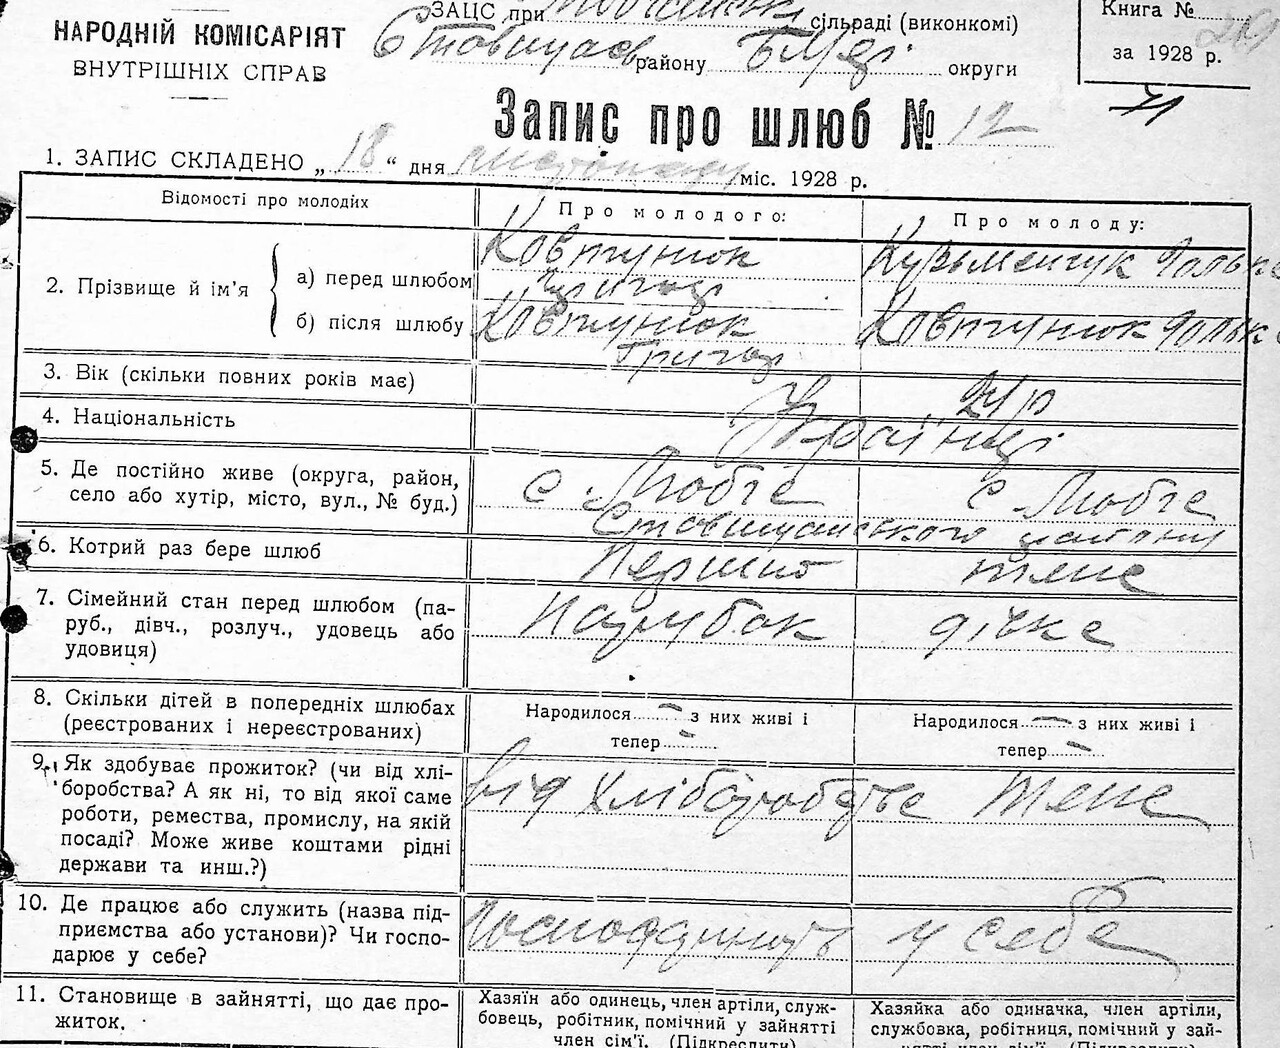 НАРОДНІЙ КОМІСАРІЯТ
ВНУТРІШНІХ СПРАВ
ЗАЦС при сільраді (виконкомі)
району округи
Книга №
за 1928 р.
Запис про шлюб № 12
1. ЗАПИС СКЛАДЕНО „ 18 “ дня листопаду міс. 1928 р.
Відомості про молодих
Про молодого:
Про молоду:
2. Прізвище й ім’я
а) перед шлюбом
Ковтунюк
Григор
Кузьменчук
б) після шлюбу
Ковтунюк
Григор
Ковтунюк
3. Вік (скільки повних років має)
4. Національність
Українці
5. Де постійно живе (округа, район,
село або хутір, місто, вул., № буд.)
с. Любче
с. Любче
Ставищанського району
6. Котрий раз бере шлюб
Перший
теж
7. Сімейний стан перед шлюбом (па-
руб., дівч., розлуч., удовець або
удовиця)
Парубок
8. Скільки дітей в попередніх шлюбах
(реєстрованих і нереєстрованих)
Народилося — з них живі і
тепер —
Народилося — з них живі і
тепер —
9. Як здобуває прожиток? (чи від хлі-
боробства? А як ні, то від якої саме
роботи, ремества, промислу, на якій
посаді? Може живе коштами рідні
держави та инш.?)
від хліборобства
10. Де працює або служить (назва під-
приємства або установи)? Чи госпо-
дарює у себе?
у себе
11. Становище в зайнятті, що дає про-
житок.
Хазяїн або одинець, член артіли, служ-
бовець, робітник, помічний у зайнятті
член сім’ї. (Підкреслити)
Хазяйка або одиначка, член артіли,
службовка, робітниця, помічний у зай-